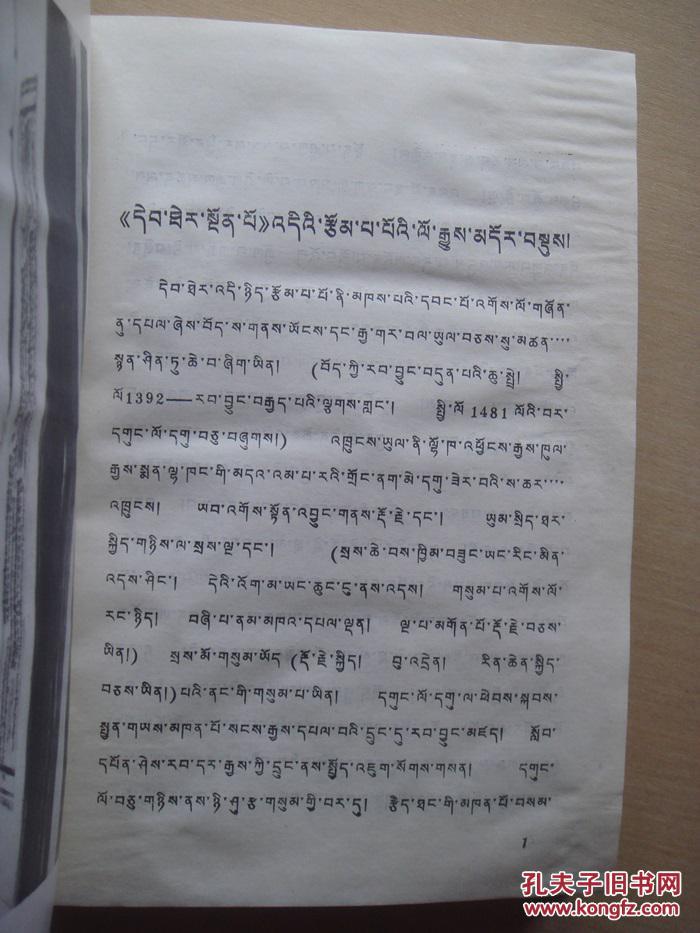 《དེབ་ཐེར་སྔོན་པོ》འདིའི་རྩོམ་པ་པོའི་ལོ་རྒྱུས་མདོར་བསྡུས།
དེབ་ཐེར་འདི་ཉིད་རྩོམ་པ་པོ་ནི་མཁས་པའི་དབང་པོ་འགོས་ལོ་གཞོན་
ནུ་དཔལ་ཞེས་བོད་ས་གནས་ཡོངས་དང་རྒྱ་གར་བལ་ཡུལ་བཅས་སུ་མཚན་····
སྙན་ཤིན་ཏུ་ཆེ་བ་ཞིག་ཡིན། (བོད་ཀྱི་རབ་བྱུང་བདུན་པའི་ཆུ་སྤྲེ། སྤྱི་
ལོ་1392—རབ་བྱུང་བརྒྱད་པའི་ལྕགས་གླང་། སྤྱི་ལོ་1481ལོའི་བར་
དགུང་ལོ་དགུ་བཅུ་བཞུགས།) འཁྲུངས་ཡུལ་ནི་ལྷོ་ཁ་འཕྱོངས་རྒྱས་ཁུལ་
རྒྱས་སྨན་ལྷ་ཁང་གི་མདའ་འམ་པ་རའི་གྲོང་ནག་མེ་དགུ་ཟེར་བའི་ས་ཆར་····
འཁྲུངས། ཡབ་འགོས་སྟོན་འབྱུང་གནས་རྡོ་རྗེ་དང་། ཡུམ་སྲིད་ཐར་
སྐྱིད་གཉིས་ལ་སྲས་ལྔ་དང་། (སྲས་ཆེ་བས་ཁྱིམ་བཟུང་ཡང་རིང་མིན་
འདས་ཤིང་། དེའི་འོག་མ་ཡང་ཆུང་ངུ་ནས་འདས། གསུམ་པ་འགོས་ལོ་
རང་ཉིད། བཞི་པ་ནམ་མཁའ་དཔལ་ལྡན། ལྔ་པ་མགོན་པོ་རྡོ་རྗེ་བཅས་
ཡིན།) སྲས་མོ་གསུམ་ཡོད་(རྡོ་རྗེ་སྐྱིད། བུ་འདྲེན། རིན་ཆེན་སྐྱིད་
བཅས་ཡིན།)པའི་ནང་གི་གསུམ་པ་ཡིན། དགུང་ལོ་དགུ་ལ་ཕེབས་སྐབས་
སྤྱན་གཡས་མཁན་པོ་སངས་རྒྱས་དཔལ་བའི་དྲུང་དུ་རབ་བྱུང་མཛད། སློབ་
དཔོན་ཤེས་རབ་དར་རྒྱས་ཀྱི་དྲུང་ནས་སྤྱོད་འཇུག་སོགས་གསན། དགུང་
ལོ་བཅུ་གཉིས་ནས་ཉི་ཤུ་རྩ་གསུམ་གྱི་བར་དུ། རྩེད་ཐང་གི་མཁན་པོ་བསམ་
1
孔夫子旧书网
www.kongfz.com